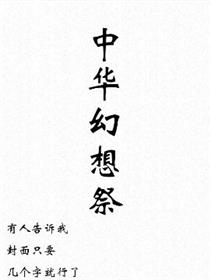 中华幻想祭
有人告诉我
封面只要
几个字就行了